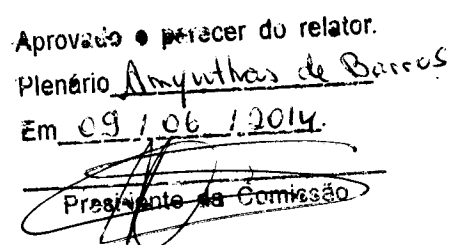 Aprovado o parecer do relator.
Plenário Amynthas de Barros
Em 09 / 06 / 2014.
Presidente da Comissão